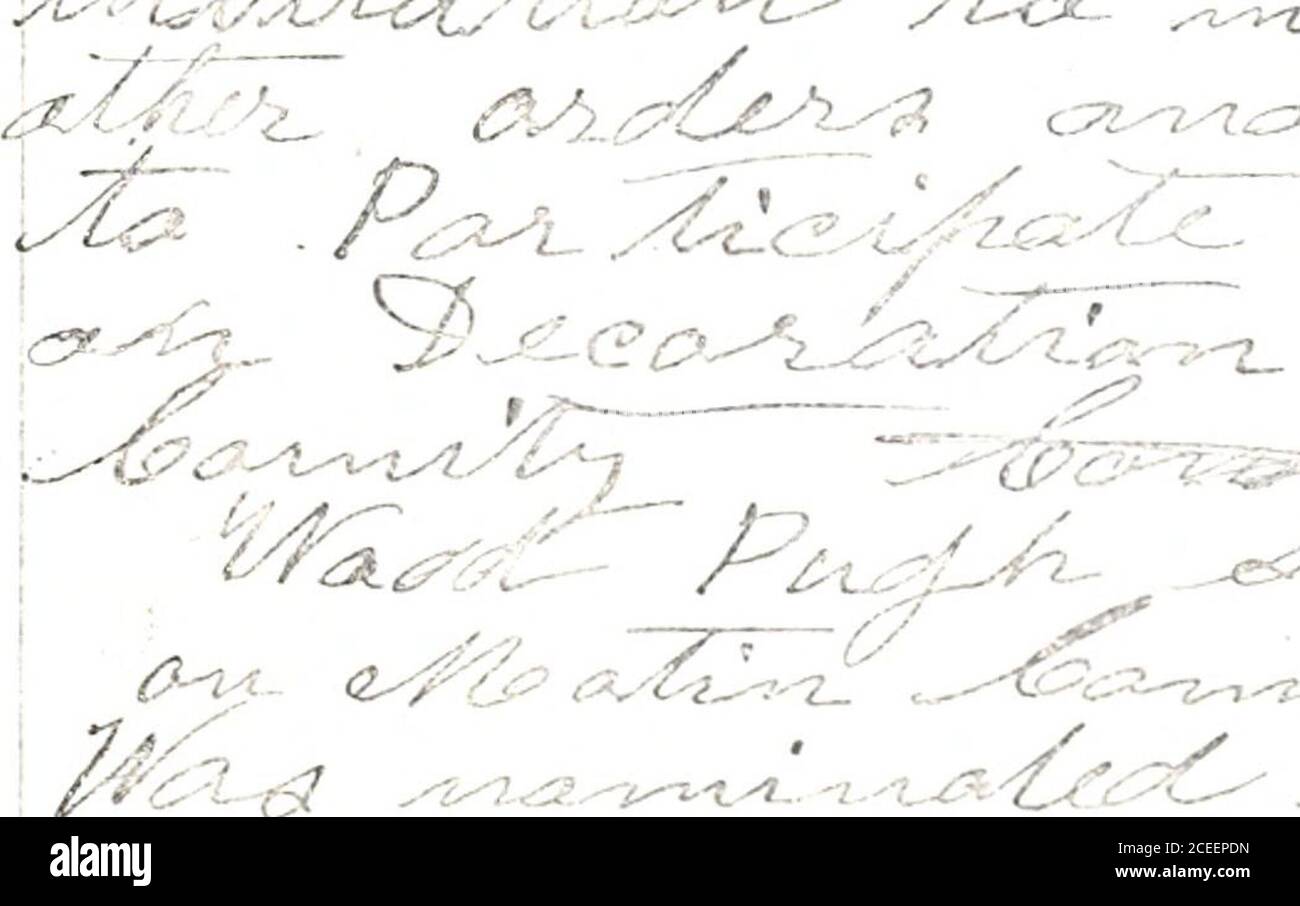 ather orders and
to Participate
on Decoration
Comity Com
Wadd Pugh
on Meatin Com
Was nominated
alamy
Image ID: 2CEEPDN
www.alamy.com